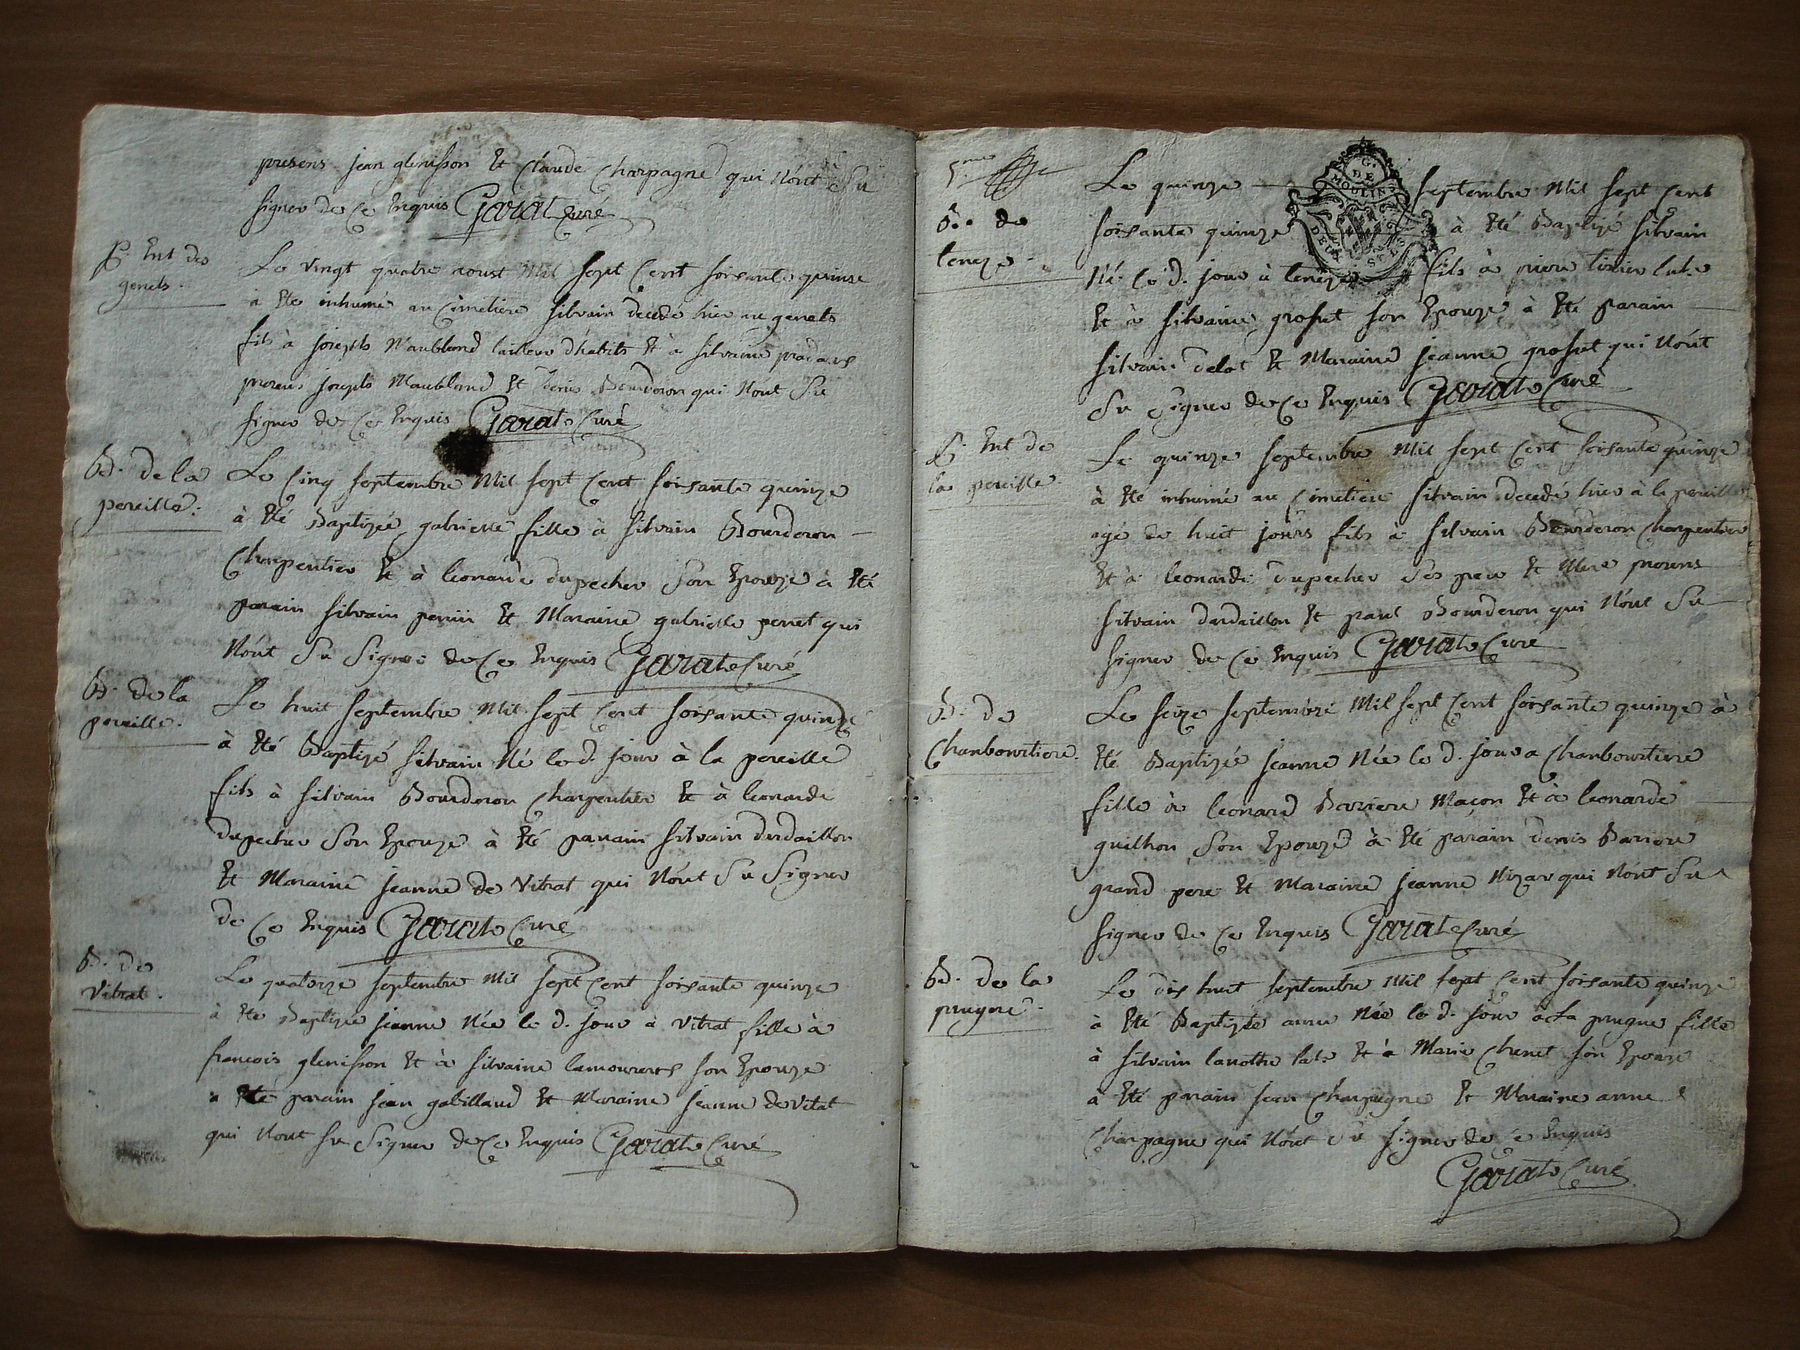 presens jean glenisson Et Claude Charpagne qui n'ont Su
signer de Ce Enquis Garat Curé
Ent des
genets.
Le vingt quatre aoust Mil Sept Cent soixante quinse
à été inhumé au Cimetiere silvain decedé hier au genets
fils à joseph Maubland tailleur d'habits Et à silvaine
presens joseph Maubland Et denis Bourderon qui n'ont Su
signer de Ce Enquis Garat Curé
B. de la
pereille.
Le Cinq septembre Mil sept Cent soixante quinze
à Eté Baptizée gabrielle fille à silvain Bourderon
Charpentier Et à leonarde dupecher Son Epouze à Eté
parain silvain Et Maraine gabrielle perret qui
N'ont Su Signer de Ce Enquis Garat Curé
B. de la
pereille.
Le huit septembre Mil sept Cent soixante quinze
à Eté Baptizé silvain Né le d. jour à la pereille
fils à silvain Bourderon Charpentier Et à leonarde
dupecher Son Epouze à Eté parain silvain dardaillon
Et Maraine jeanne de Vitrat qui N'ont Su Signer
de Ce Enquis Garat Curé
B. de
Vitrat.
Le quatorze septembre Mil sept Cent soixante quinze
à Eté Baptizée jeanne Née le d. jour à Vitrat fille à
francois glenisson Et à silvaine lamoureres son Epouze
a Eté parain jean gabillaud Et Maraine jeanne de vitrat
qui N'ont su Signer de Ce Enquis Garat Curé
5.eme
B. de
teneze.
G. DE MOULINS
Le quinze septembre Mil sept Cent
soixante quinze à Eté Baptizé silvain
Né le d. jour à teneze fils à pierre tixier lab.r
Et à silvaine grosset son Epouze à Eté parain
silvain delot Et Maraine jeanne grosset qui N'ont
Su Signer de Ce Enquis Garat Curé
Ent de
la pereille
Le quinze septembre Mil sept Cent soixante quinze
à Eté inhumé au Cimetiere silvain decedé hier à la pereille
agé de huit jours fils à silvain Bourderon Charpentier
Et à leonarde dupecher Ses pere Et Mere presens
silvain dardaillon Et paul Bourderon qui N'ont Su
signer de Ce Enquis Garat Curé
B. de
Chanbourtiere.
Le seize septembre Mil sept Cent soixante quinze à
Eté Baptizée jeanne Née le d. jour a Chanbourtiere
fille à leonard Barriere Maçon Et à leonarde
guilhon Son Epouze à Eté parain denis Barriere
grand pere Et Maraine jeanne qui N'ont Su
signer de Ce Enquis Garat Curé
B. de la
prugne.
Le dix huit septembre Mil sept Cent soixante quinze
à Eté Baptizée anne Née le d. jour à la prugne fille
à silvain lamothe lab.r Et à Marie Chenet son Epouze
à Eté parain jean Charpagne Et Maraine anne
Charpagne qui N'ont Su signer de Ce Enquis
Garat Curé